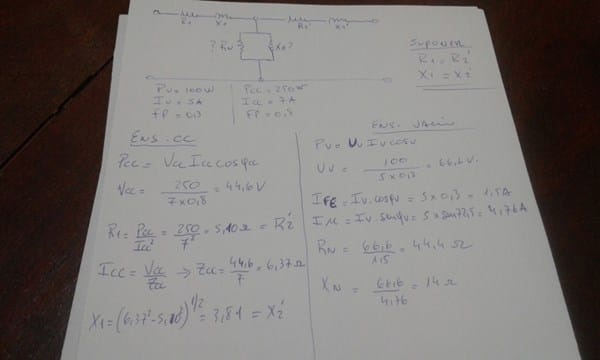 R1 X1 R2' X2'
? RN XN?
SUPONER
R1 = R2'
X1 = X2'
PV = 100W
IV = 5A
FP = 0,3
PCC = 250W
ICC = 7A
FP = 0,8
ENS. CC
PCC = VCC ICC COSφCC
VCC = 250 / 7x0,8 = 44,6V
R1 = PCC / ICC² = 250 / 7² = 5,10Ω = R2'
ICC = VCC / ZCC → ZCC = 44,6 / 7 = 6,37Ω
X1 = (6,37² - 5,10²)^1/2 = 3,81 = X2'
ENS. VACIO
PV = UV IV COSφV
UV = 100 / 5x0,3 = 66,6V.
IFE = IV. COSφV = 5 x 0,3 = 1,5A
Iμ = IV. senφV = 5 x sen72,5 = 4,76A
RN = 66,6 / 1,5 = 44,4 Ω
XN = 66,6 / 4,76 = 14 Ω